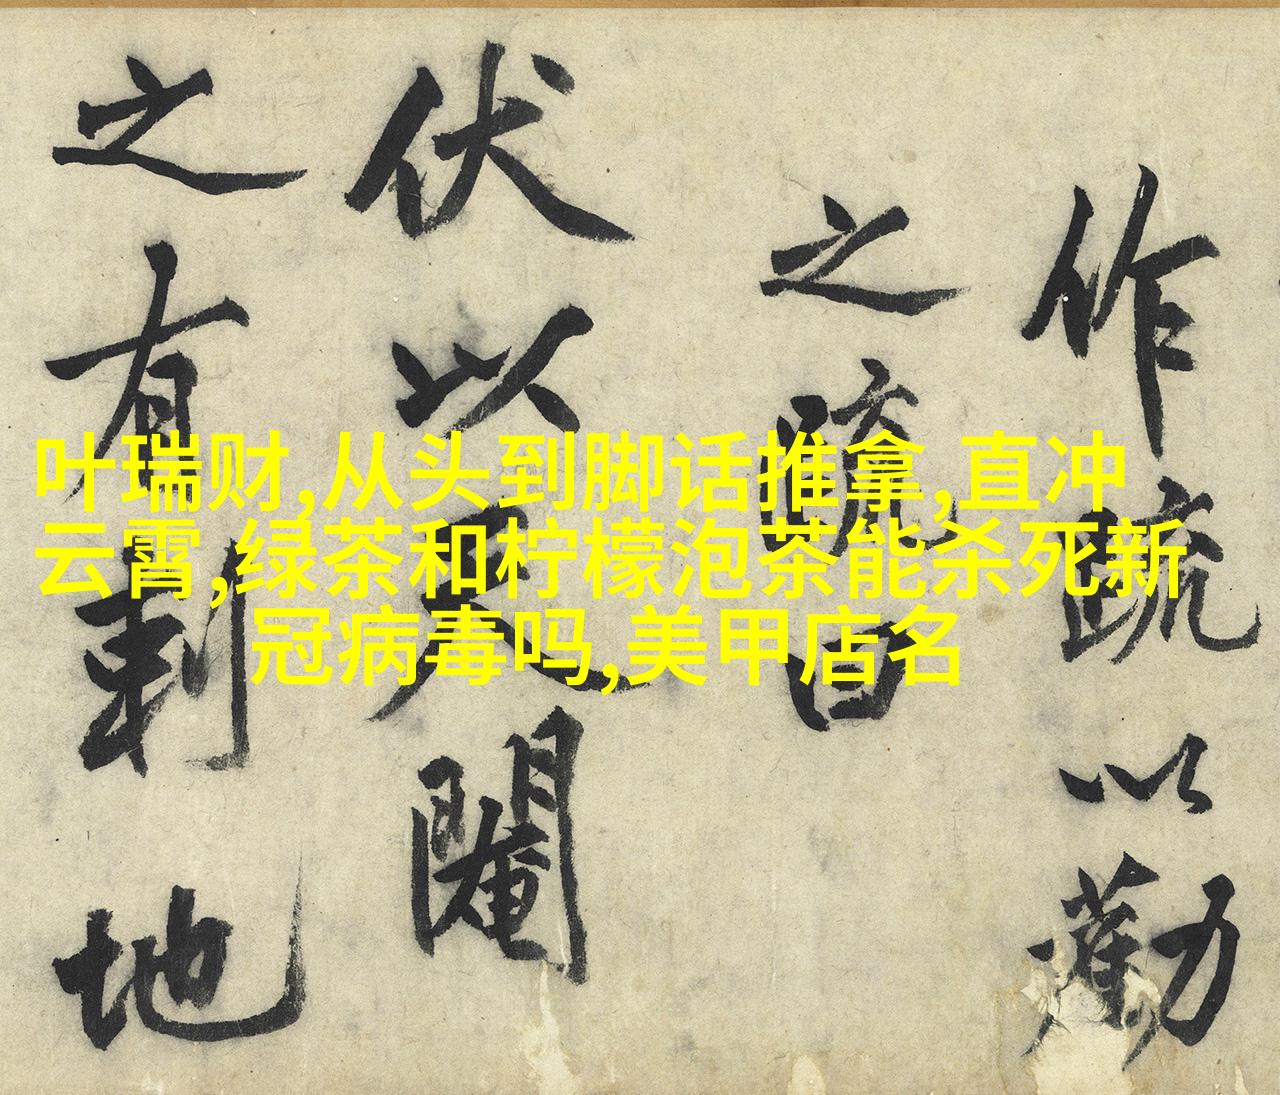 作疏以勸
之疏曰
伏以天閹
之有剩地
叶瑞财,从头到脚话推拿,直冲
云霄,绿茶和柠檬泡茶能杀死新
冠病毒吗,美甲店名